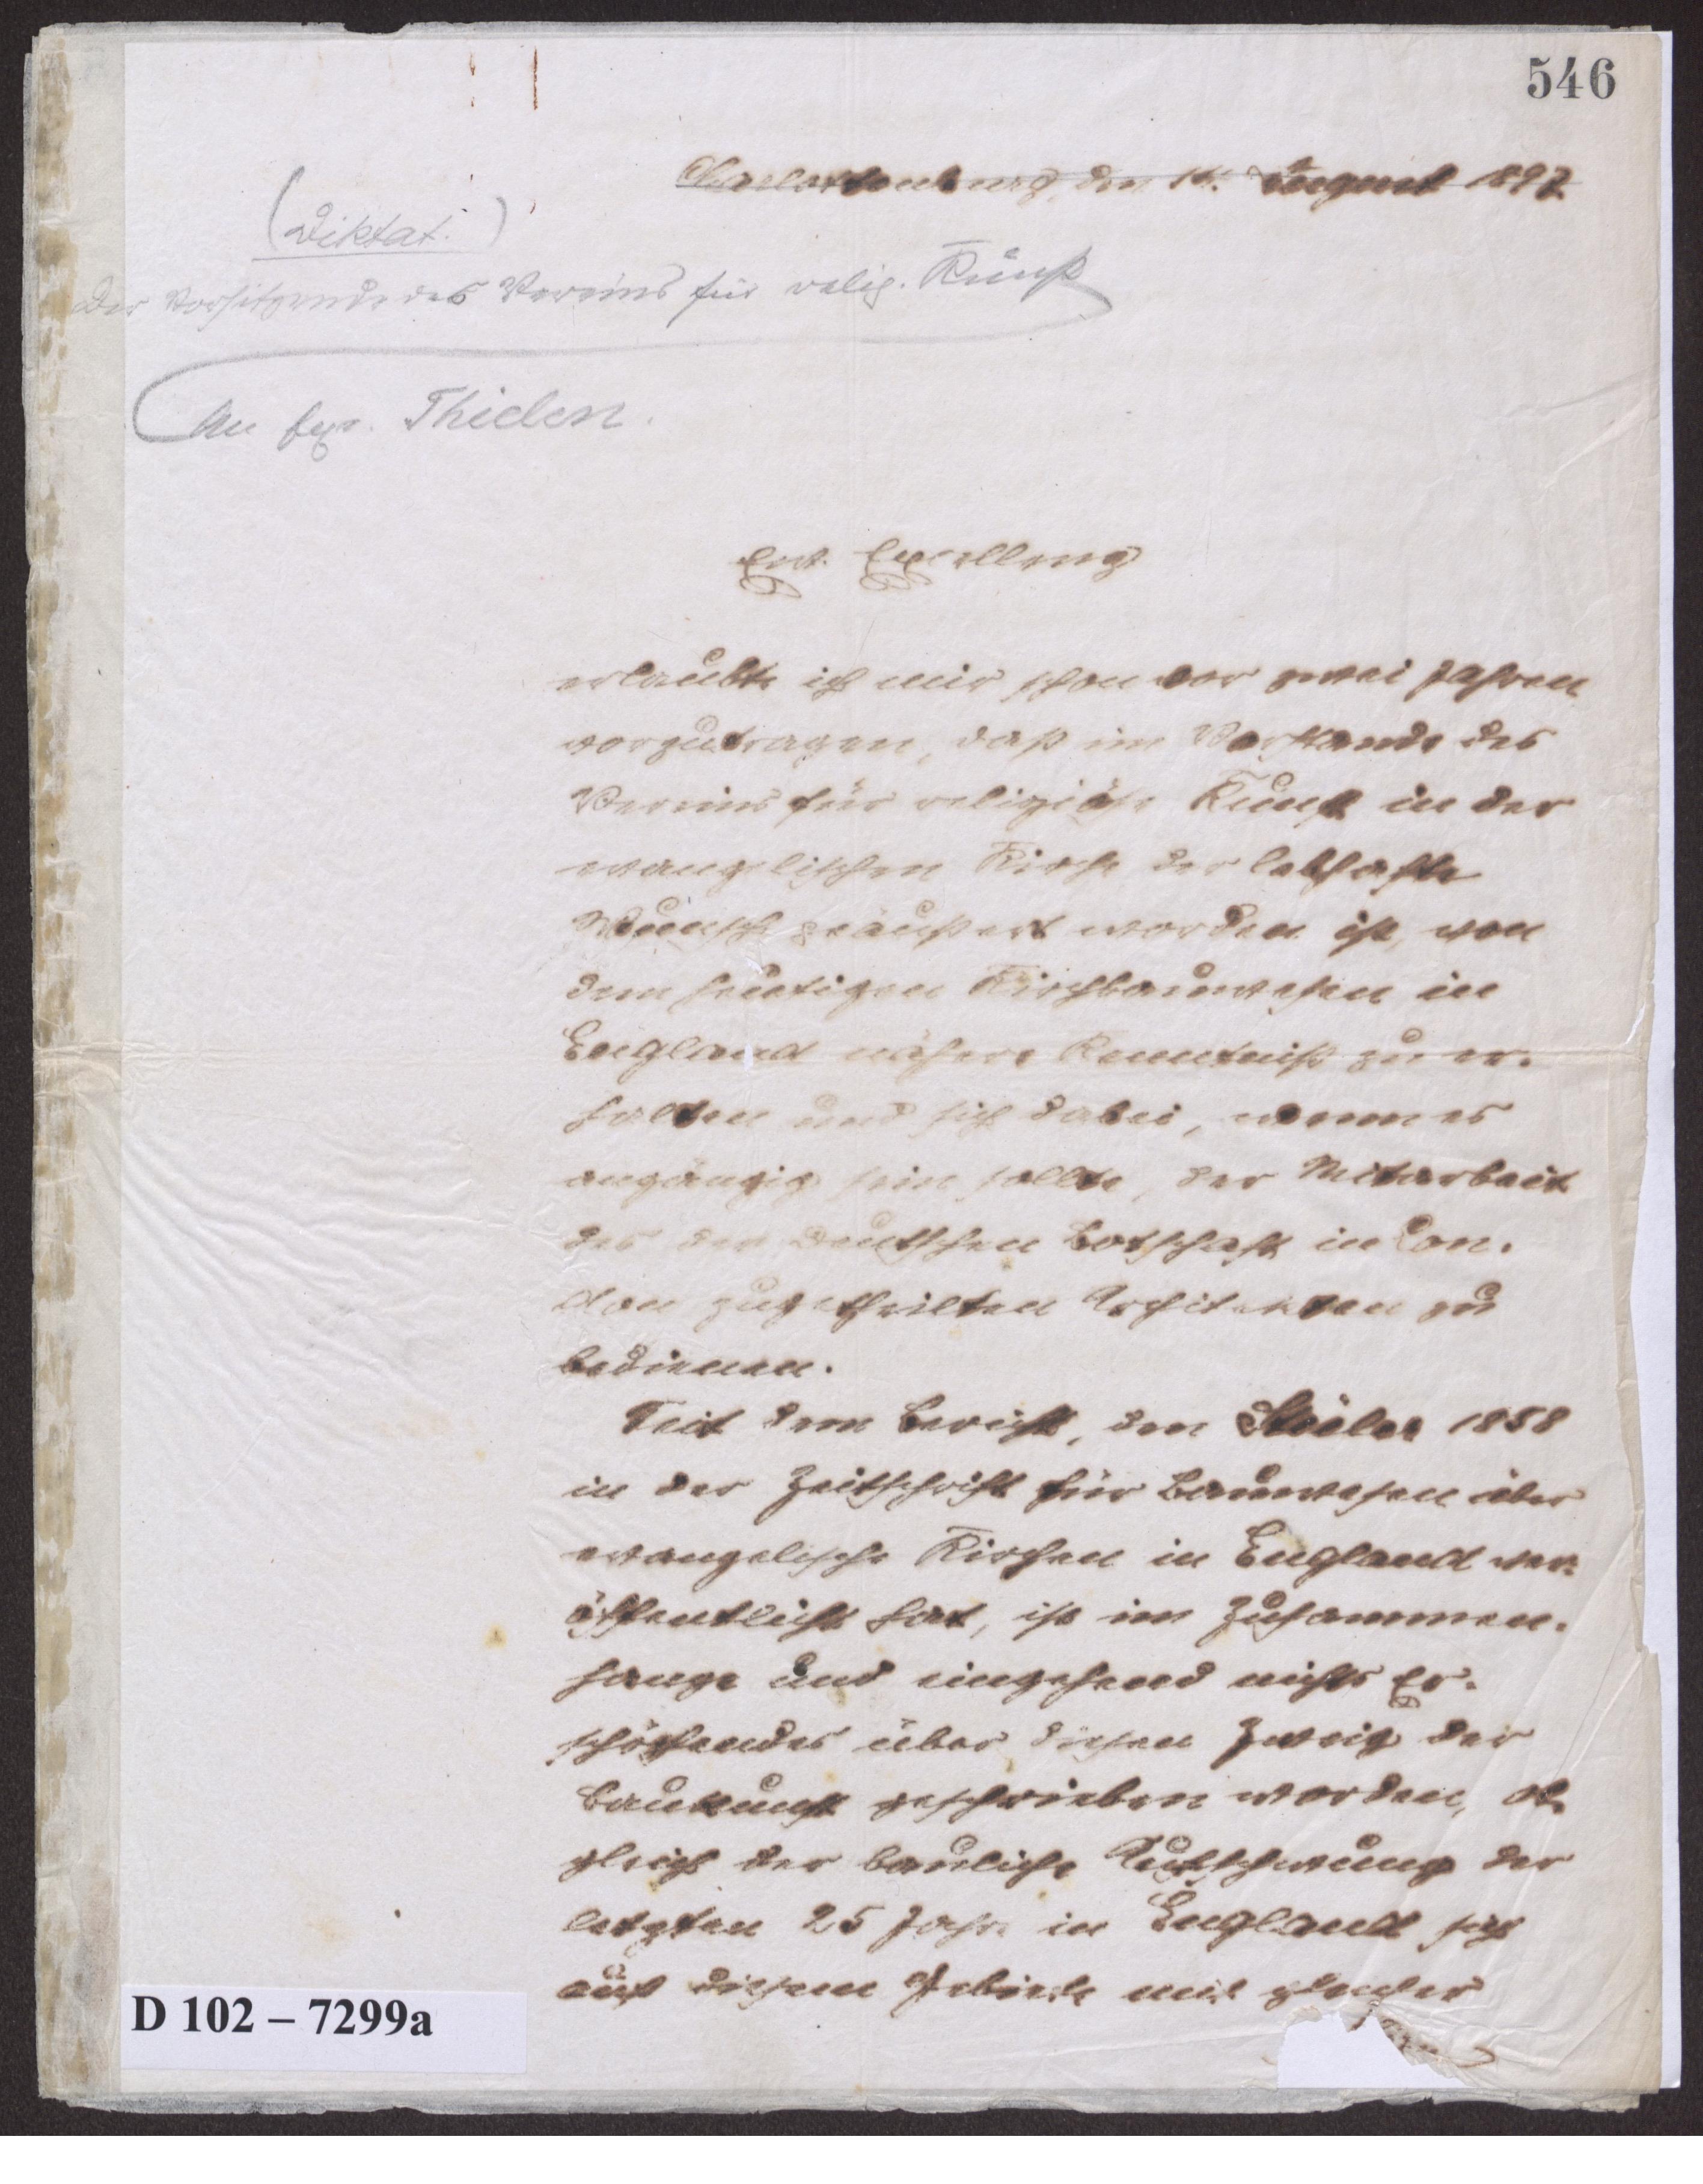 546
Charlottenburg, den 14. August 1897.
(Diktat.)
Der Vorsitzende des Vereins für relig. Kunst
An Exz. Thielen.
Ew. Excellenz
erlaubte ich mir schon vor zwei Jahren
vorzutragen, daß im Vorstande des
Vereins für religiöse Kunst in der
evangelischen Kirche der lebhafte
Wunsch geäußert worden ist, von
dem heutigen Kirchbauwesen in
England nähere Kenntniß zu er-
halten und sich dabei, wenn es
angängig sein sollte, der Mitarbeit
des der Deutschen Botschaft in Lon-
don zugetheilten Architekten zu
bedienen.
Seit dem Bericht, den Stüler 1858
in der Zeitschrift für Bauwesen über
evangelische Kirchen in England ver-
öffentlicht hat, ist im Zusammen-
hange und eingehend nichts Er-
schöpfendes über diesen Zweig der
Baukunst geschrieben worden, ob-
gleich der bauliche Aufschwung der
letzten 25 Jahre in England sich
auf diesem Gebiete mit gleicher
D 102 – 7299a